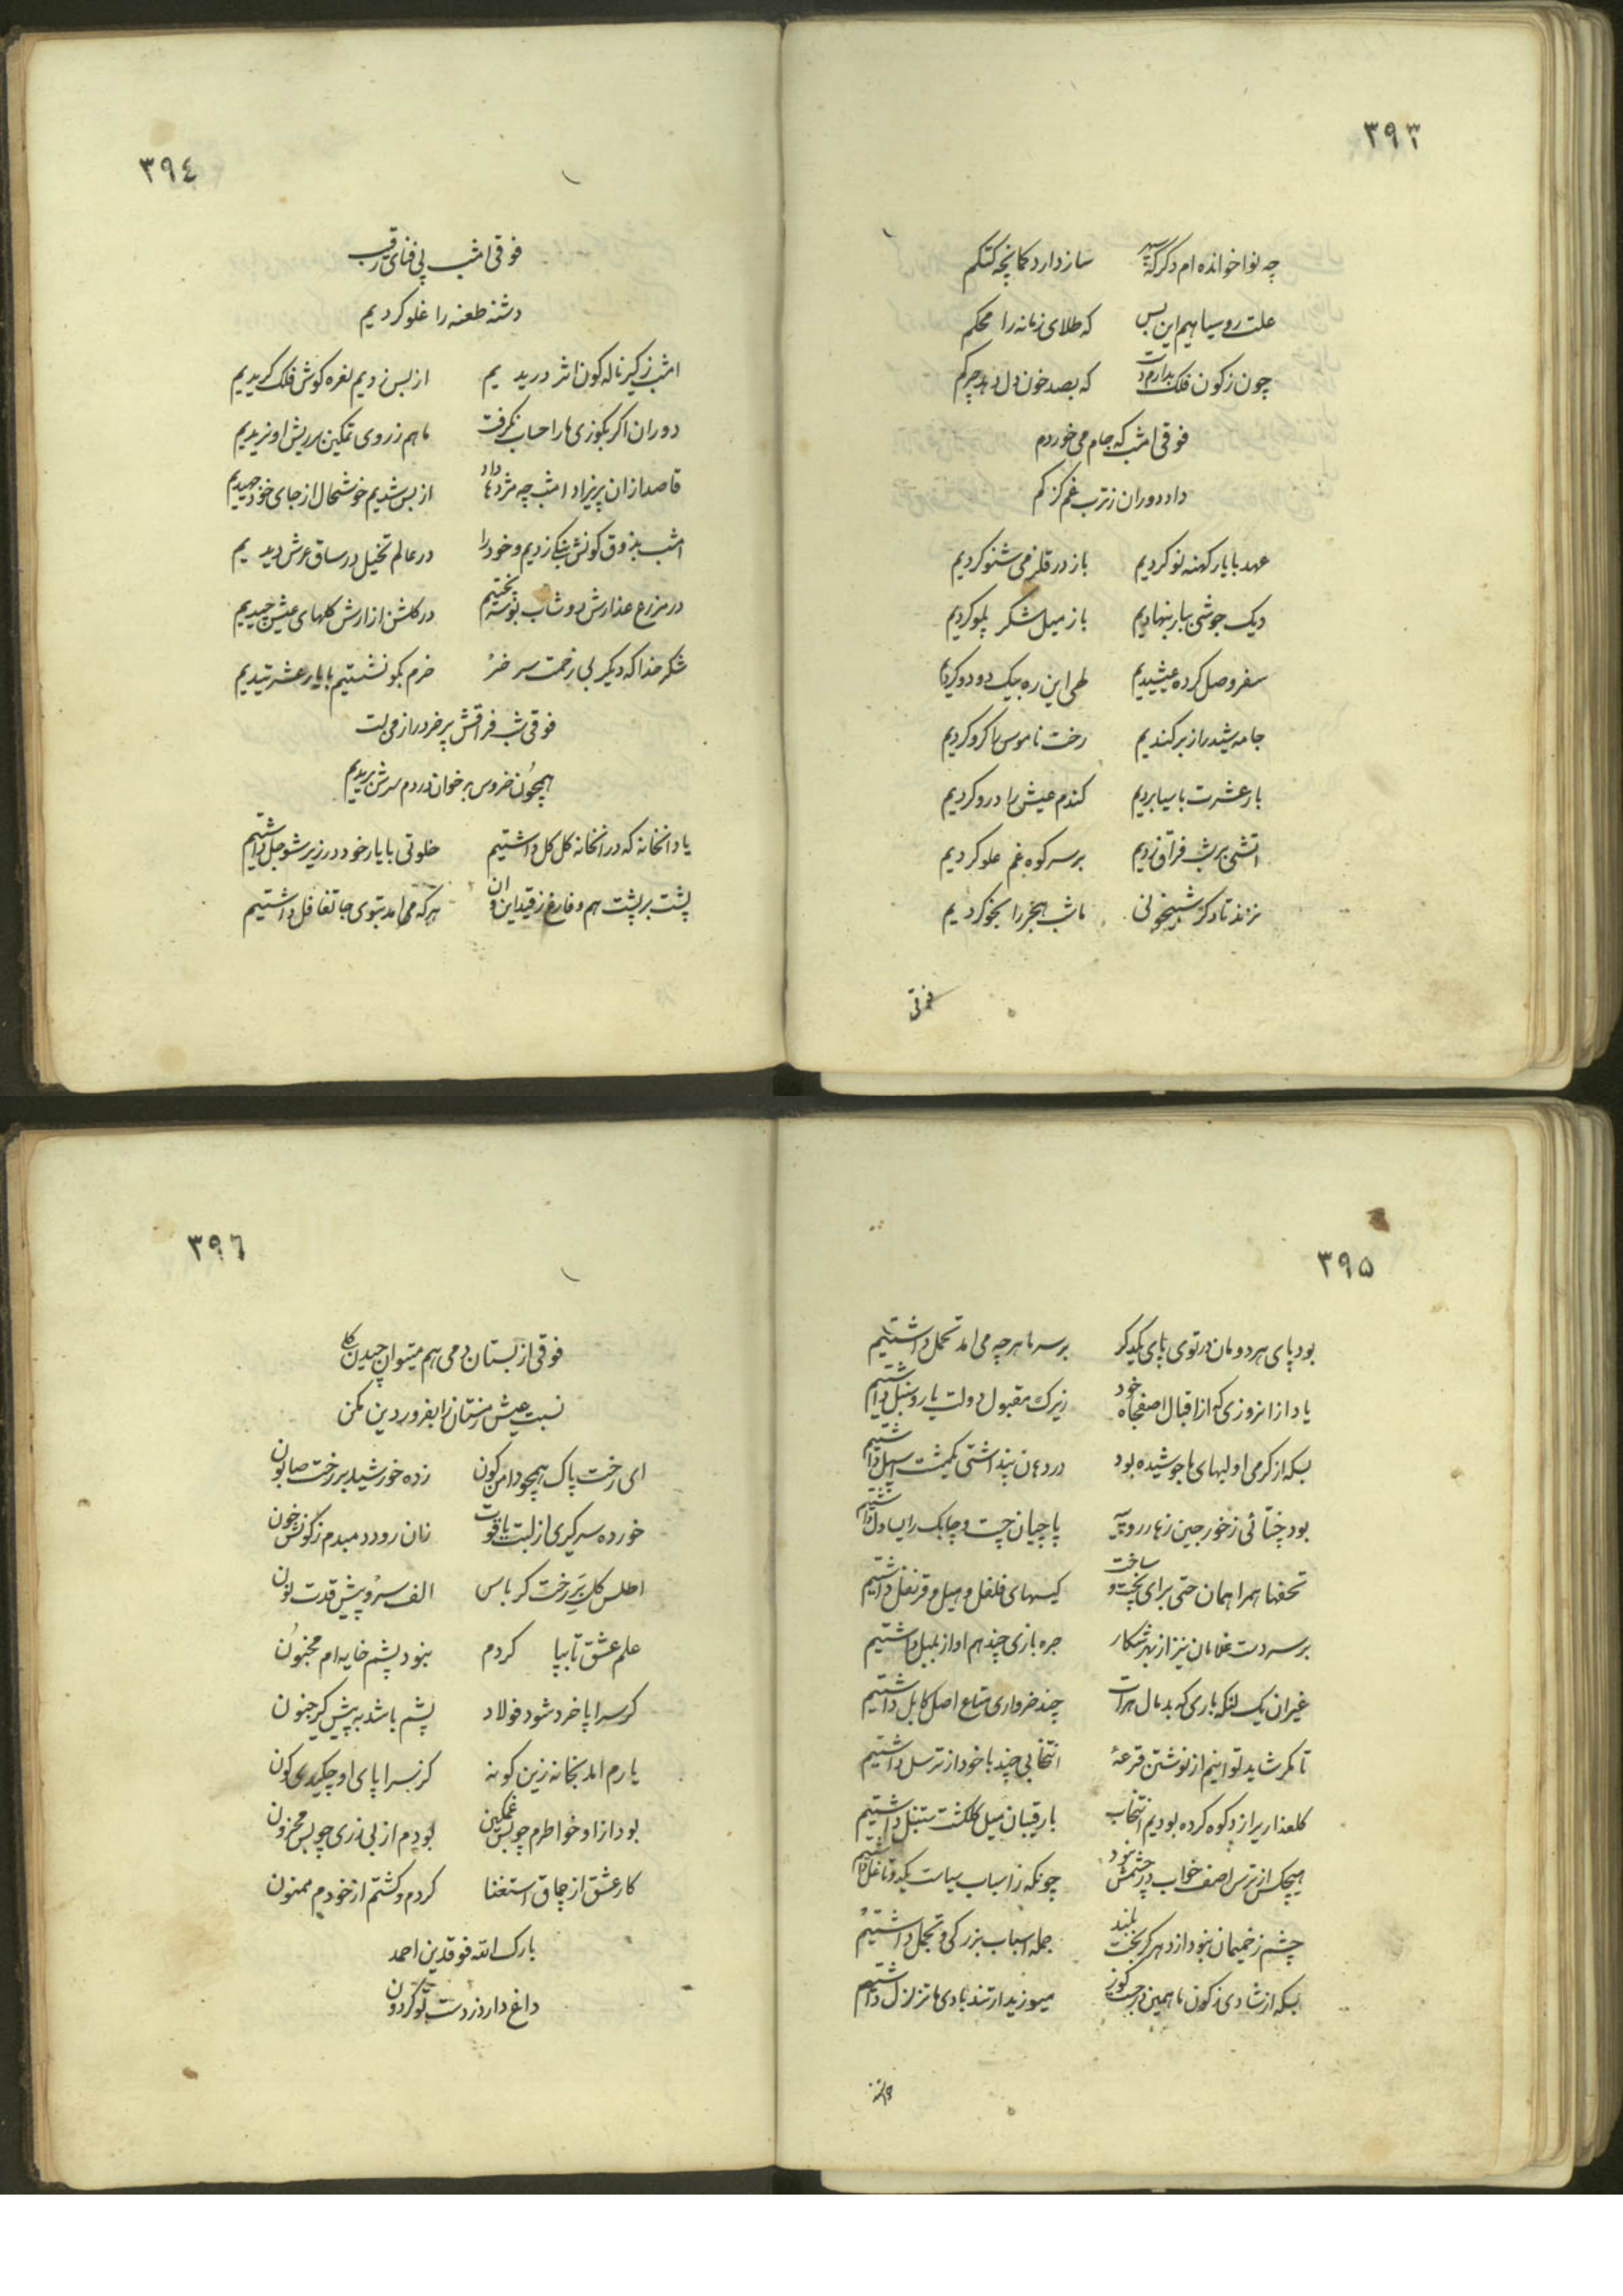 ۳۹۳
چه نوا خوانده ام دگر که سپهر ساز دارد کمانچه کتکم
علت رو سیاهیم این بس که طلای زمانه را محکم
چون ز کون فلک بدارم دست که بصد خون دل
فوقی امشب که جام می خوردم
داد دوران ز ترب غم گزکم
عهد با یار کهنه نو کردیم باز در قلزمی شنو کردیم
دیک جوشی ببار بنهادیم باز میل شکر پلو کردیم
سفر وصل کرده عیشیدیم طی این ره بیک دو دو کردیم
جامه شید را ز بر کندیم رخت ناموس را کرو کردیم
بار عشرت باسیا بردیم کندم عیش را درو کردیم
اتشی بر شب فراق زدیم بر سر کوه غم علو کردیم
نزند تا دکر شبیخونی ما شب هجر را بخو کردیم
فوقی
۳۹٤
فوقی امشب پی فنای رقیب
دشنه طعنه را غلو کردیم
امشب ز کیر ناله کون اثر دریدیم از بس زدیم نعره کوش فلک کریدیم
دوران اکر بکوزی ما را حساب نکرفت ما هم ز روی تمکین بر ریش او نریدیم
قاصد ازان پریزاد امشب چه مژدها داد از بس شدیم خوشحال از جای خود جهیدیم
امشب بذوق کونش بنکی زدیم و خود را در عالم تخیل در ساق عرش دیدیم
در مزرع عذارش دوشاب بوسه پختیم در کلشن ازارش کلهای عیش چیدیم
شکر خدا که دیکر بی زحمت سر خر خرم بکو نشستیم با یار عشرتیدیم
فوقی شب فراقش پر خر دراز می لت
همچون خروس بر خوان در دم سرش بریدیم
یاد انخانه که در انخانه کل کل داشتیم خلوتی با یار خود در زیر شو جل داشتیم
پشت بر پشت هم و فارغ ز قید این و ان هر که می امد بتوی جا تغافل داشتیم
۳۹۵
بود پای هر دومان در توی پای یکدکر بر سر ما هر چه می امد تحمل داشتیم
یاد از انروزی که از اقبال اصفجاه خود زیرک مقبول دولت یار و سنبل داشتیم
بسکه از کرمی او لبهای ما جوشیده بود در دهان پنداشتی یکمشت اسپل داشتیم
بود چتائی ز خورجین زها رو رو پاچیان چست و چابک را یساول داشتیم
تحفها همراهمان حتی برای پخت و ساخت کیسهای فلفل و هیل و قرنفل داشتیم
بر سر دست غلامان نیز از بهر شکار جره بازی چند هم اواز بلبل داشتیم
غیر ان یک لنکه باری که بد مال هرات چند خرواری متاع اصل کابل داشتیم
تا مکر شاید توانیم از نوشتن قرعۀ انتخابی چند با خود از ترسل داشتیم
کلعذاریرا ز دکوه کرده بودیم انتخاب با رقیبان میل کلکشت ستنبل داشتیم
هیچکس از ترس اصف خواب در چشمش نبود چونکه ز اسباب سیاست یکدو تا غل داشتیم
چشم زخمیمان نبود از هر کر بخت بلند جمله اسباب بزرکی و تجمل داشتیم
بسکه از شادی ز کون ما همین میجست کوز میوزید ار تند بادی ما تزلزل داشتیم
۳۹٦
فوقی از بستان دمی هم میتوان چیدن کلی
نسبت عیش زمستان را بفروردین مکن
ای رخت پاک همچو دامن کون زده خورشید بر رخت صابون
خورده سر کیری از لبت یاقوت زان رو دمبدم ز کونش خون
اطلس کل بر رخت کرباس الف سرو پیش قدت نون
علم عشق تا بپا کردم بنود پشم خایه ام مجنون
کر سراپا خرد شود فولاد پشم باشد به پیش کیر جنون
یارم امد بخانه زین کونه کز سراپای او چکیدی کون
بود ازاد خواطرم چو بس غمکین بودم از بی ذری چو بس محزون
کار عشق از چاق استغنا کردم و کشتم از خودم ممنون
بارک الله فوقدین احمد
داغ دارد ز دست تو کردون